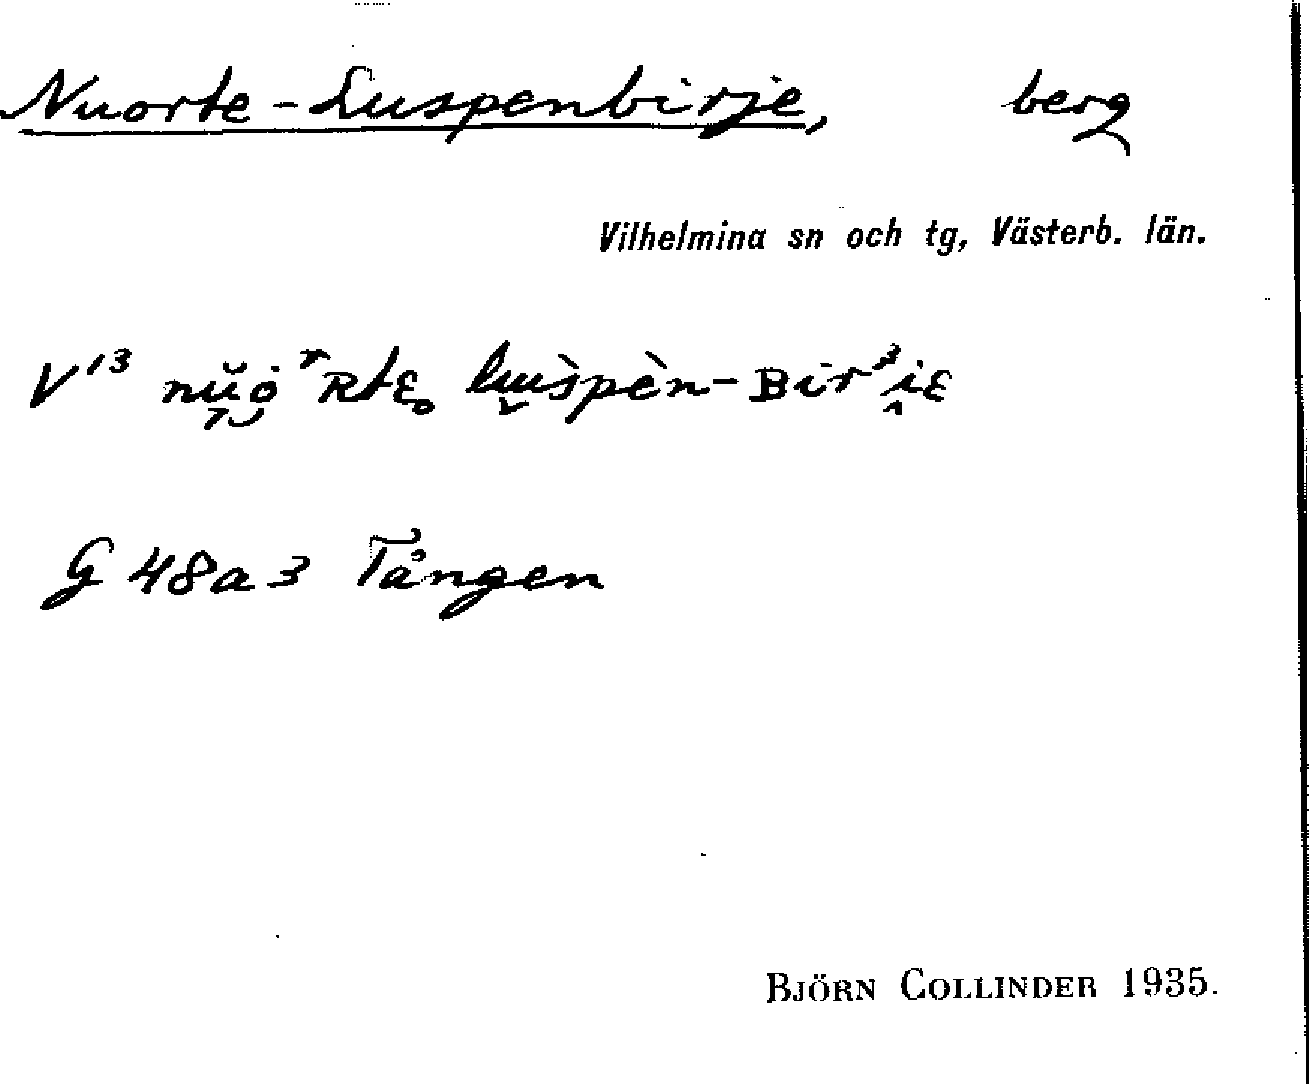 Nuorte-Luspenbirje, berg
Vilhelmina sn och tg, Västerb. län.
V¹³
G 48a3 Tången
BJÖRN COLLINDER 1935.